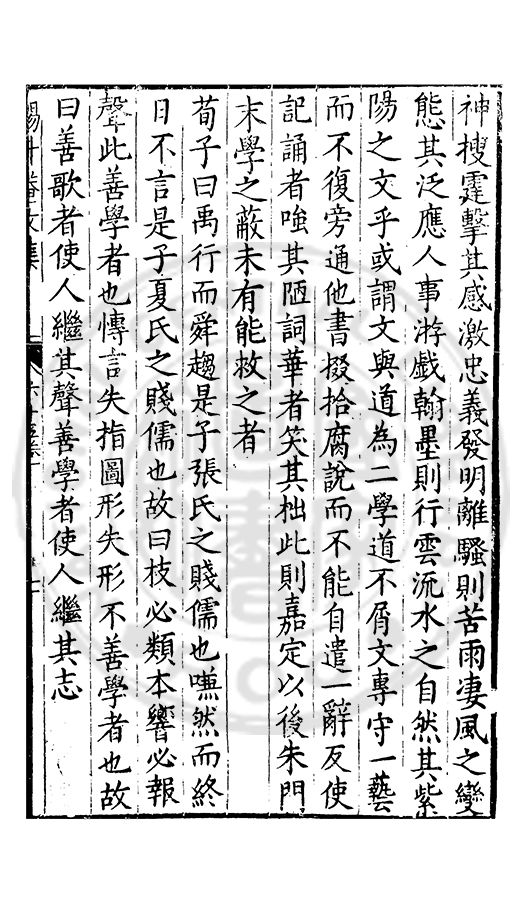 神搜霆擊其感激忠義發明離騷則苦雨凄風之變
態其泛應人事游戲翰墨則行雲流水之自然其紫
陽之文乎或謂文與道為二學道不屑文專守一藝
而不復旁通他書掇拾腐說而不能自遣一辭反使
記誦者嗤其陋詞華者笑其拙此則嘉定以後朱門
末學之蔽未有能救之者
荀子曰禹行而舜趨是子張氏之賤儒也嗛然而終
日不言是子夏氏之賤儒也故曰枝必類本響必報
聲此善學者也慱言失指圖形失形不善學者也故
曰善歌者使人繼其聲善學者使人繼其志